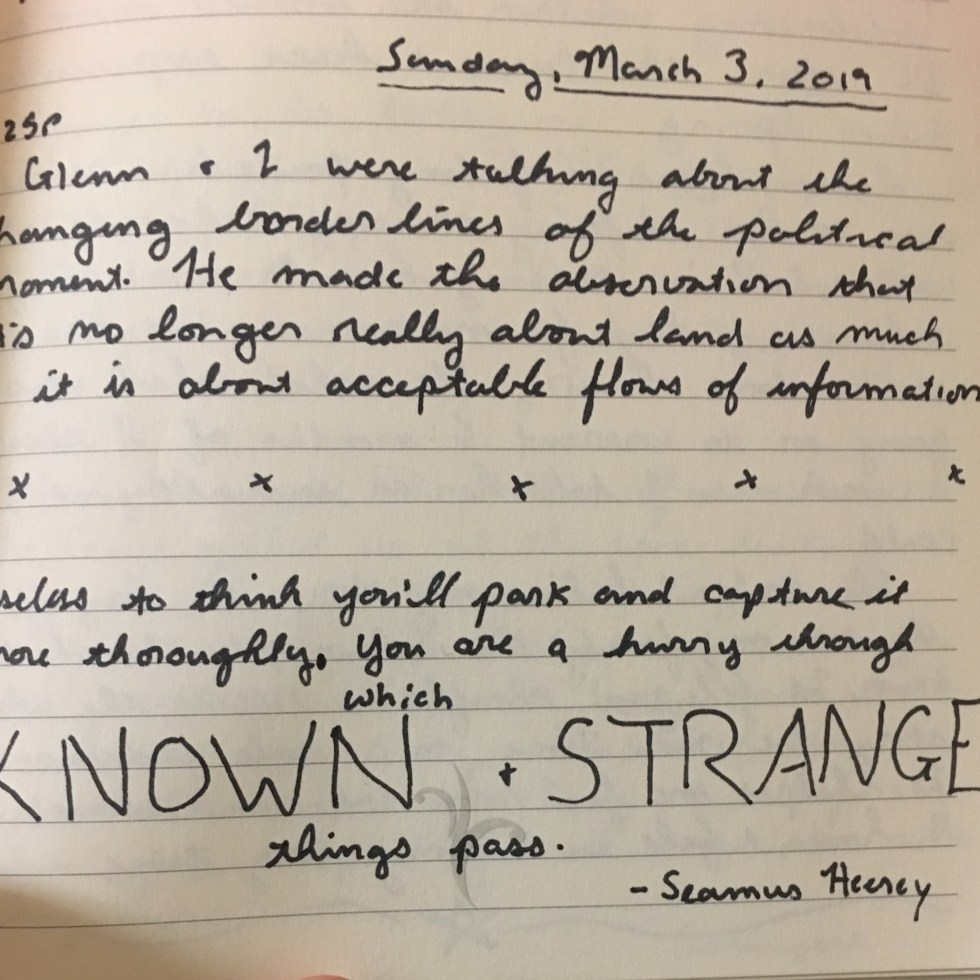 Sunday, March 3, 2019
25P
Glenn & I were talking about the
hanging border lines of the political
moment. He made the observation that
is no longer really about land as much
it is about acceptable flows of information
x x x x x
seless to think you'll park and capture it
more thoroughly. You are a hurry through
which
KNOWN + STRANGE
things pass.
- Seamus Heeney